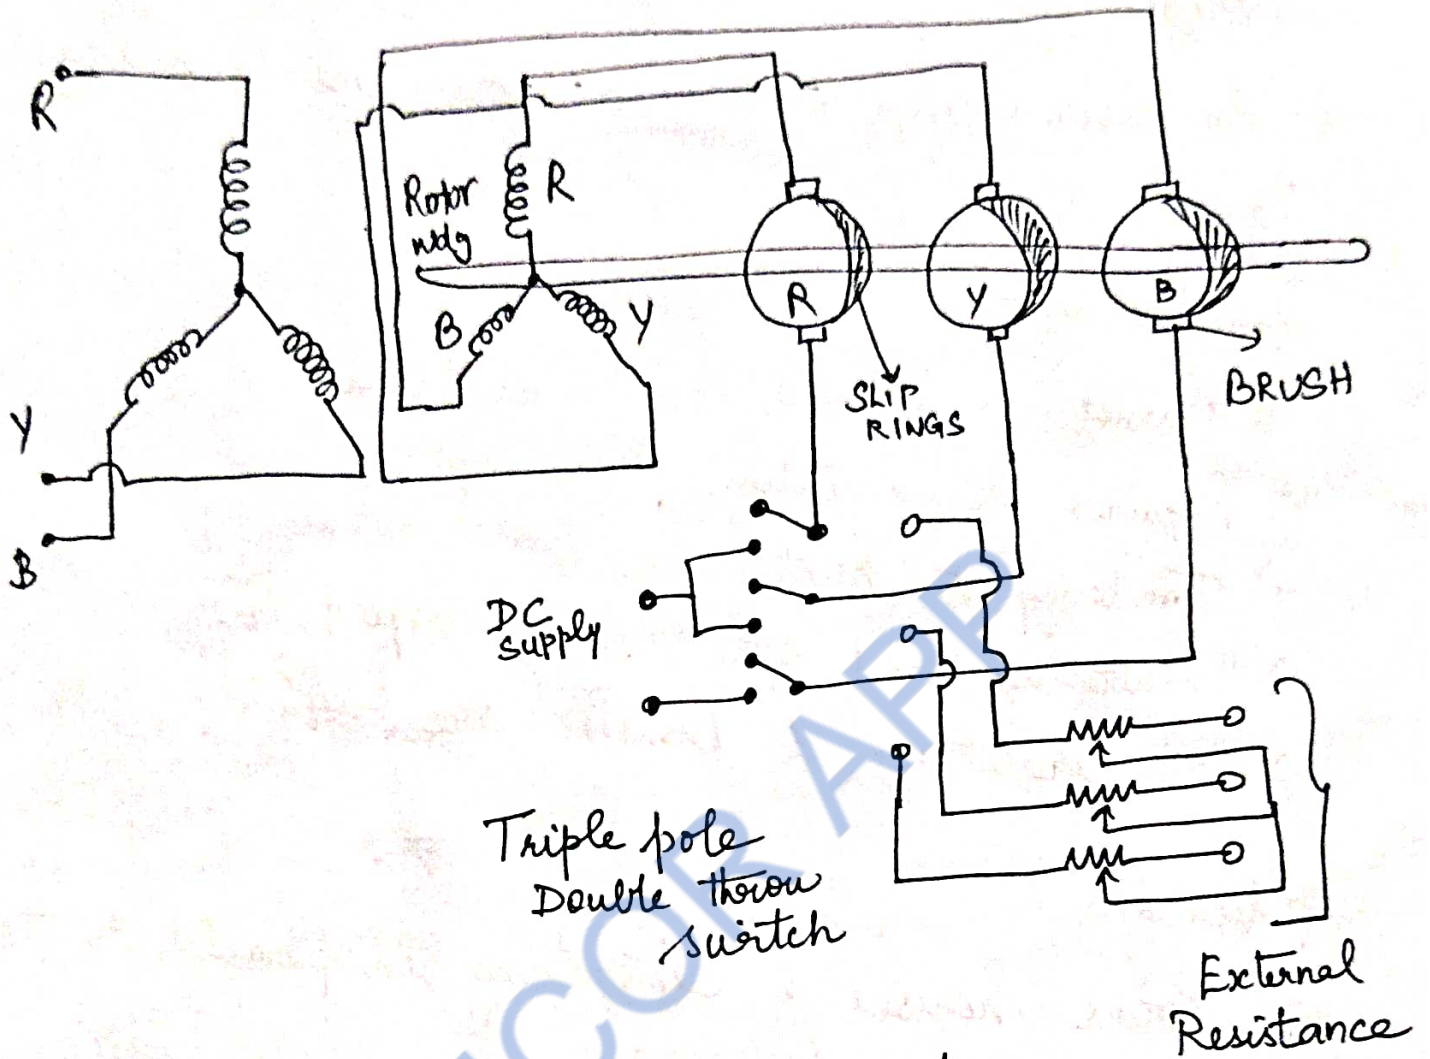 R
Y
B
Rotor
wdg
R
B
Y
R
Y
B
SLIP
RINGS
BRUSH
DC
supply
Triple pole
Double throw
switch
External
Resistance
COR APP